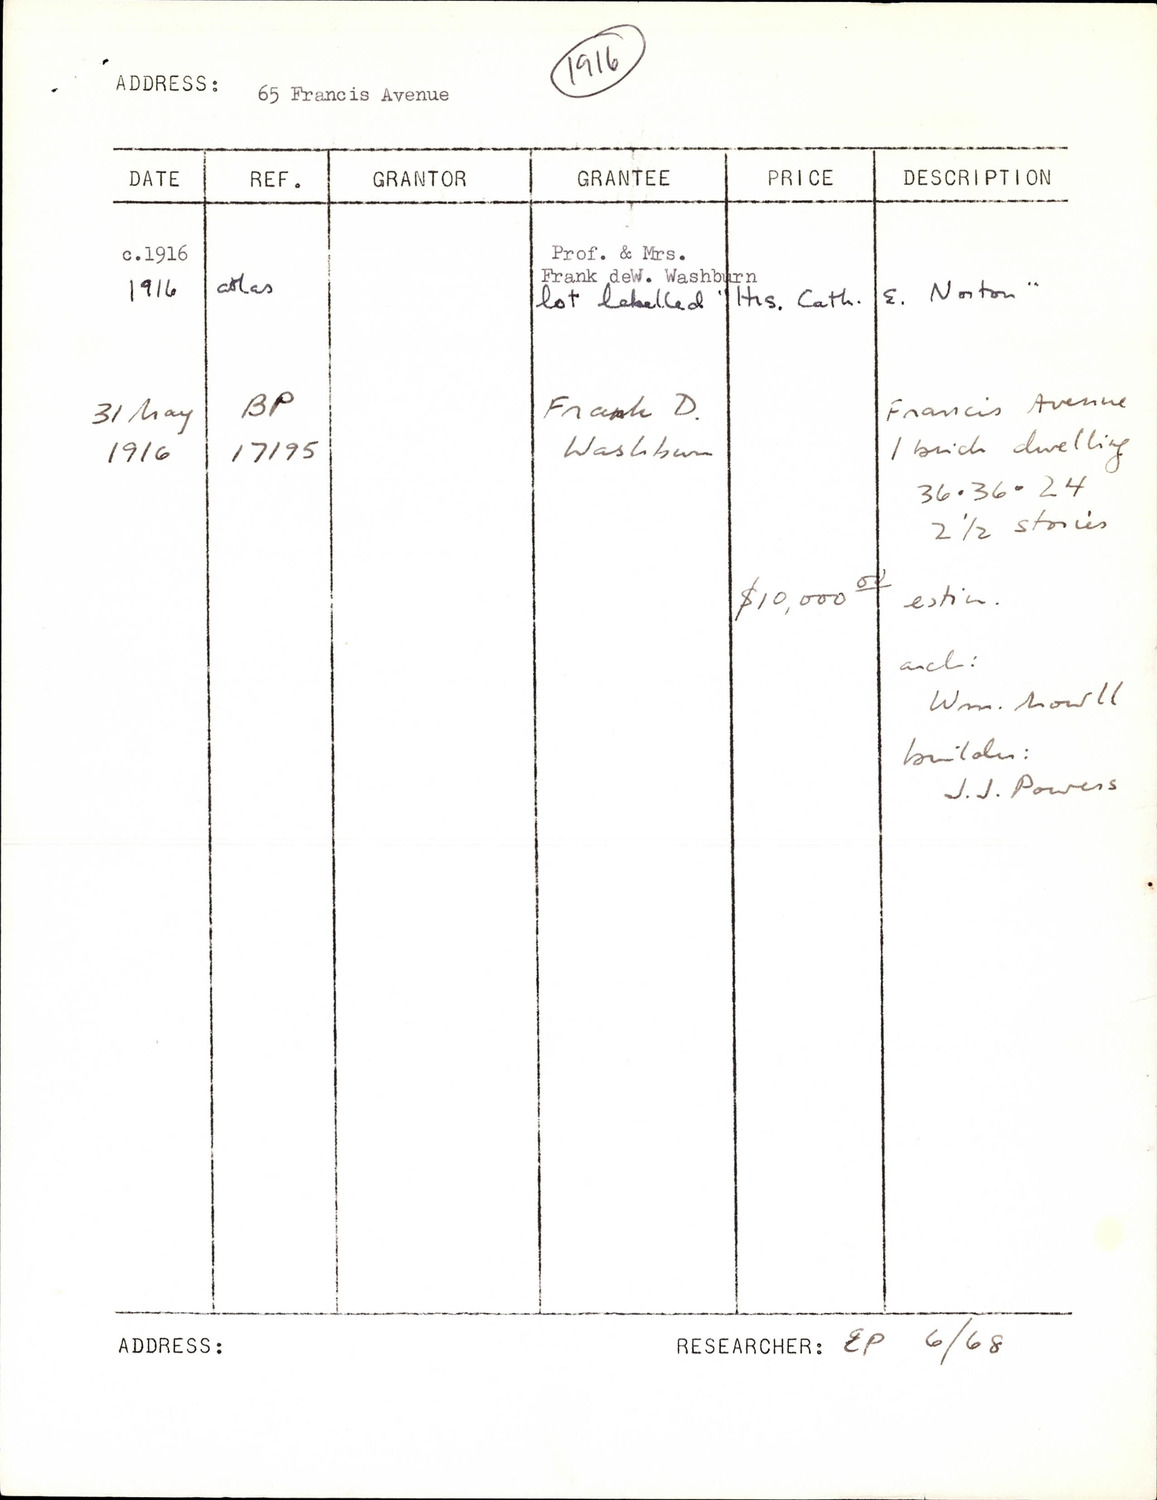 1916
ADDRESS: 65 Francis Avenue
DATE REF. GRANTOR GRANTEE PRICE DESCRIPTION
c.1916 Prof. & Mrs.
Frank deW. Washburn
1916 atlas lot labelled "Mrs. Cath. E. Norton"
31 May BP Frank D. Francis Avenue
1916 17195 Washburn 1 brick dwelling
36·36·24
2 1/2 stories
$10,000 estim.
arch:
Wm.
builder:
J.J. Powers
ADDRESS: RESEARCHER: EP 6/68